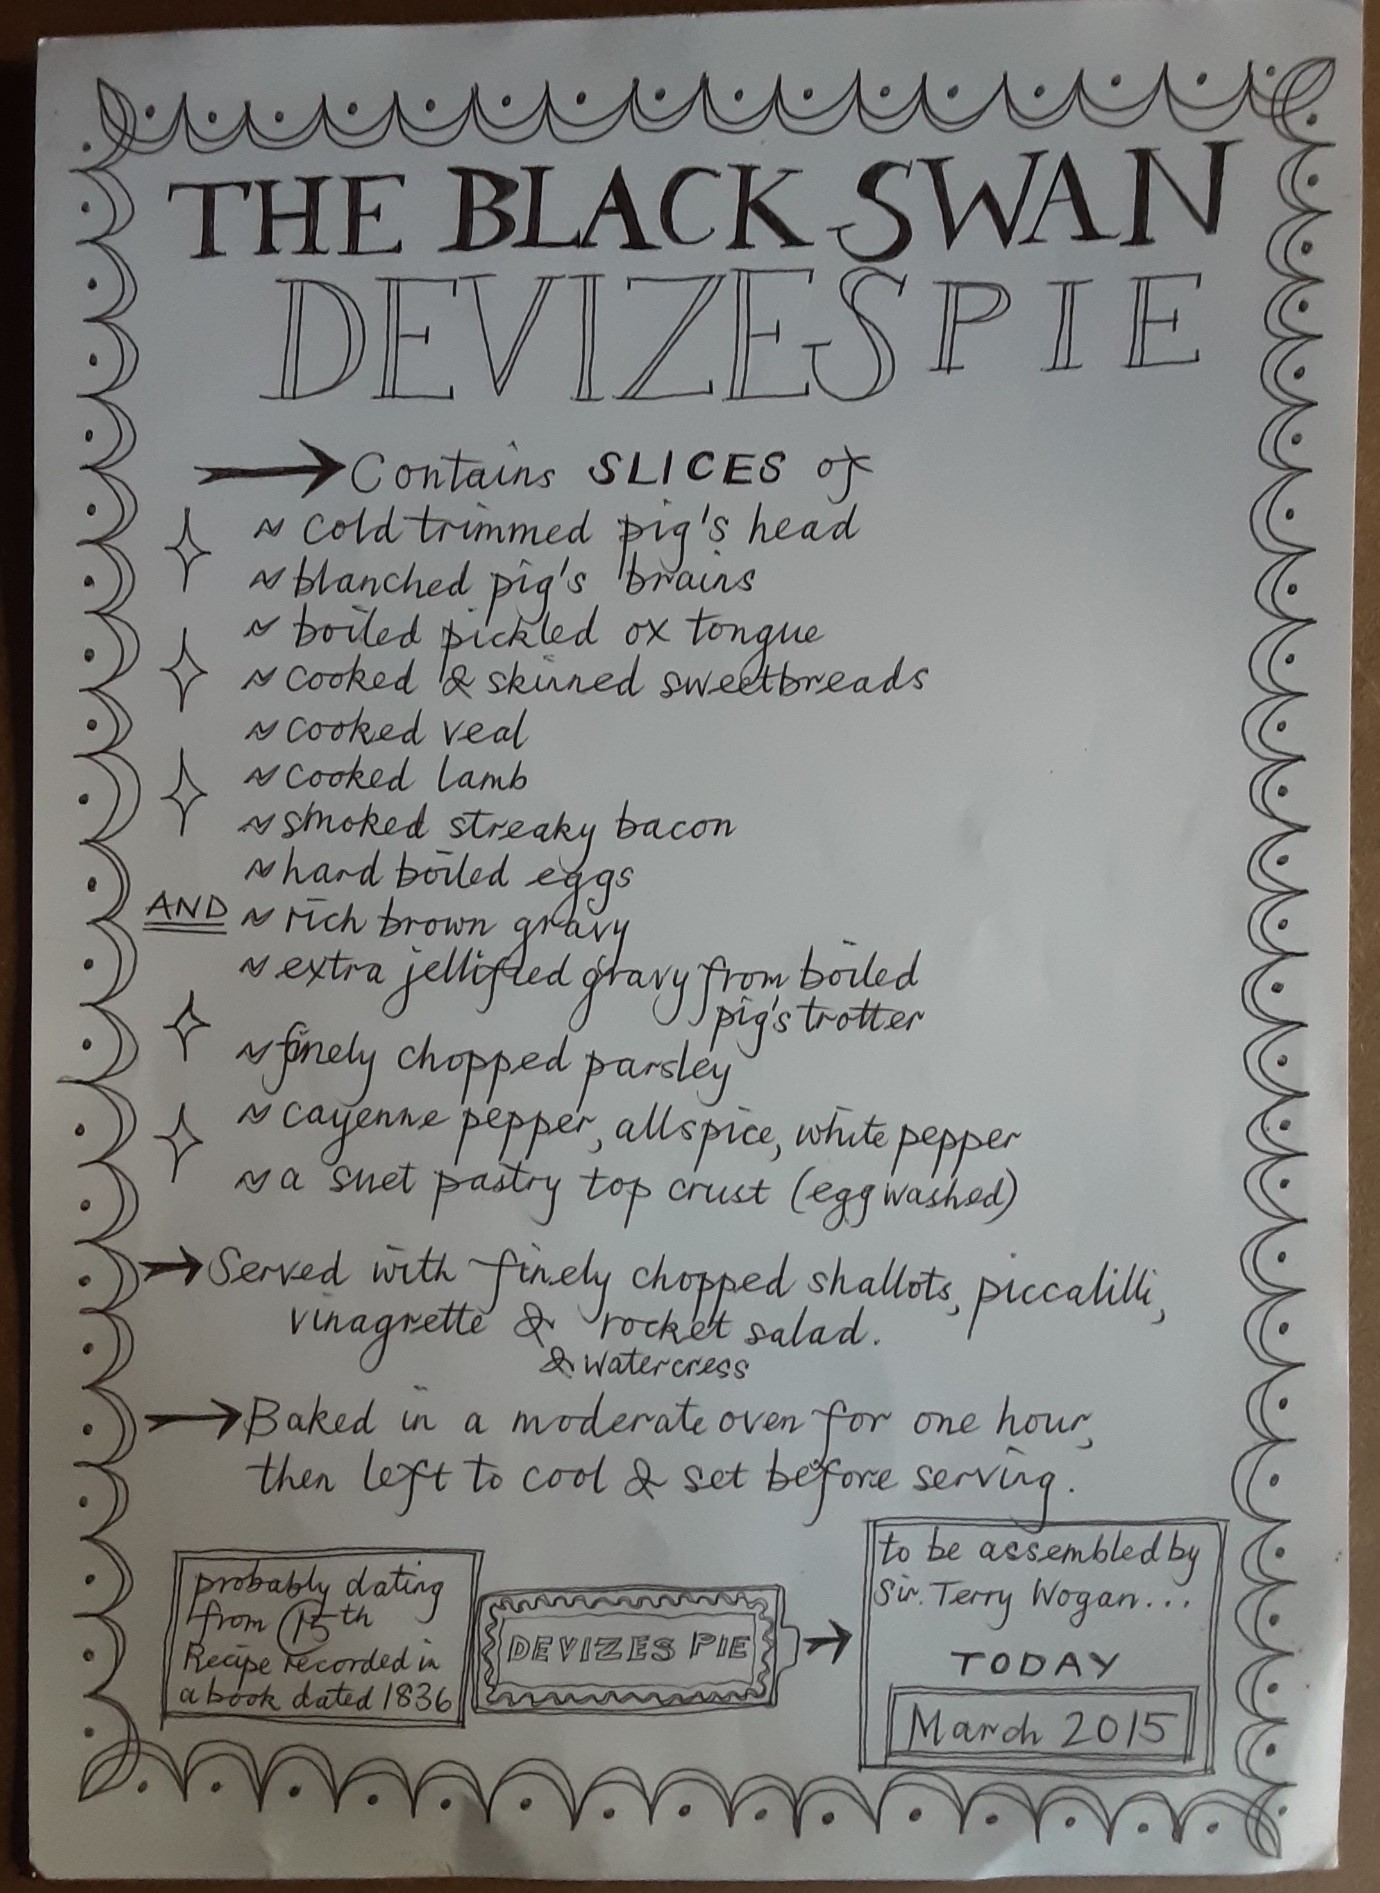 THE BLACK SWAN
DEVIZES PIE
Contains SLICES of
~ cold trimmed pig's head
~ blanched pig's brains
~ boiled pickled ox tongue
~ cooked & skinned sweetbreads
~ cooked veal
~ cooked lamb
~ smoked streaky bacon
~ hard boiled eggs
AND ~ rich brown gravy
~ extra jellified gravy from boiled
pig's trotter
~ finely chopped parsley
~ cayenne pepper, allspice, white pepper
~ a suet pastry top crust (egg washed)
Served with finely chopped shallots, piccalilli,
vinagrette & rocket salad.
& watercress
Baked in a moderate oven for one hour,
then left to cool & set before serving.
probably dating
from 15th
Recipe recorded in
a book dated 1836
DEVIZES PIE
to be assembled by
Sir. Terry Wogan...
TODAY
March 2015